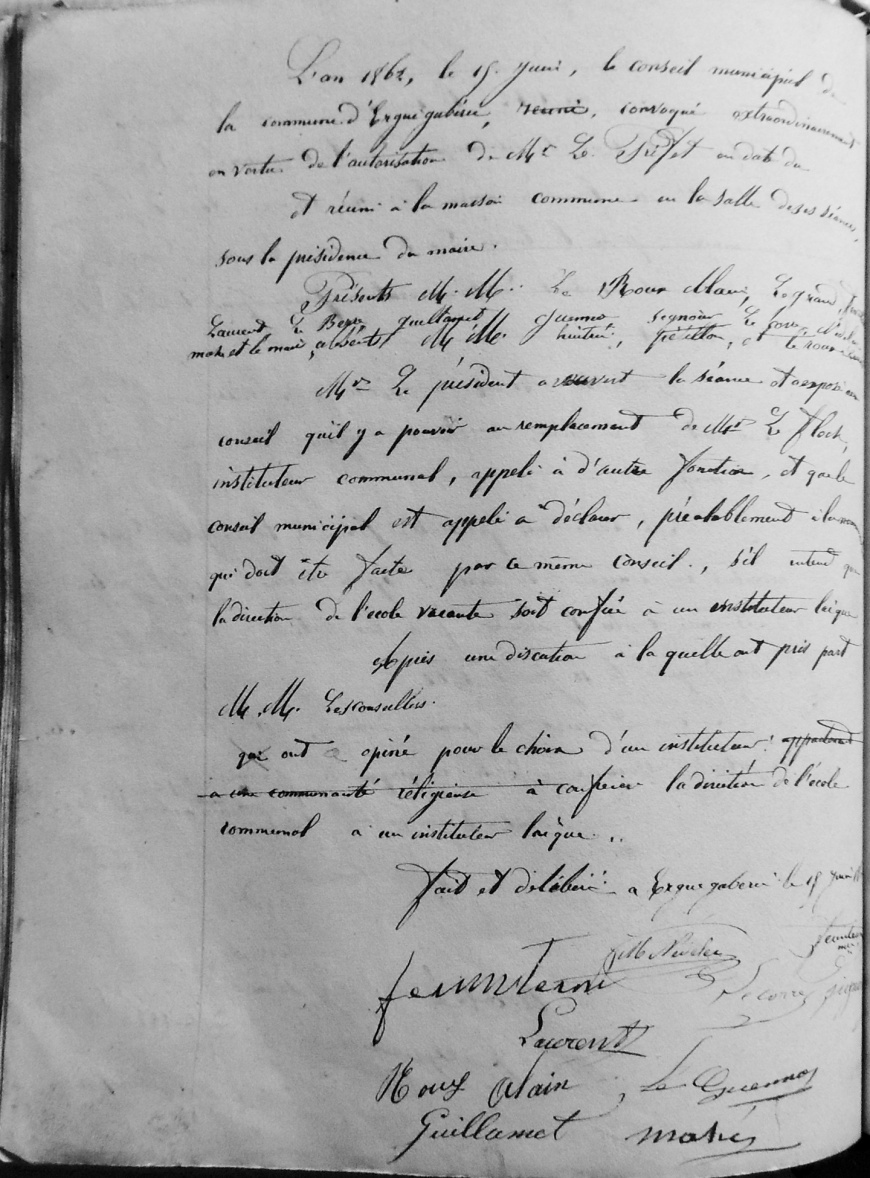 L'an 1862, le 15 Juin, le conseil municipal de
la commune d'Ergué gabéric, réuni, convoqué extraordinairement
en vertu de l'autorisation de Mr Le Préfet en date du
et réuni à la maison commune en la salle de ses séances,
sous la présidence du maire.
Présents M. M. Le Roux Alain, Legrand,
Laurent Le Berre guillamet guennou Signour Le Corre
mahé et le maire, absents M M. huitric, et le roux
Mr Le président a ouvert la séance et a exposé au
conseil qu'il y a pouvoir au remplacement de Mr Le floch,
instituteur communal, appelé à d'autre fonction, et que le
conseil municipal est appelé a déclarer, préalablement
qui doit être faite par ce même conseil, s'il entend que
la direction de l'école vacante soit confiée à un instituteur laïque
Après une discution à la quelle ont pris part
M. M. Les conseillers.
qui ont opiné pour le choix d'un instituteur appartenant
a une communauté réligieuse à confier la direction de l'école
communal a un instituteur laïque..
fait et délibéré a Ergué gaberic le 15 Juin
Le corre
Laurent
Roux Alain, Le Guennou
Guillamet mahé